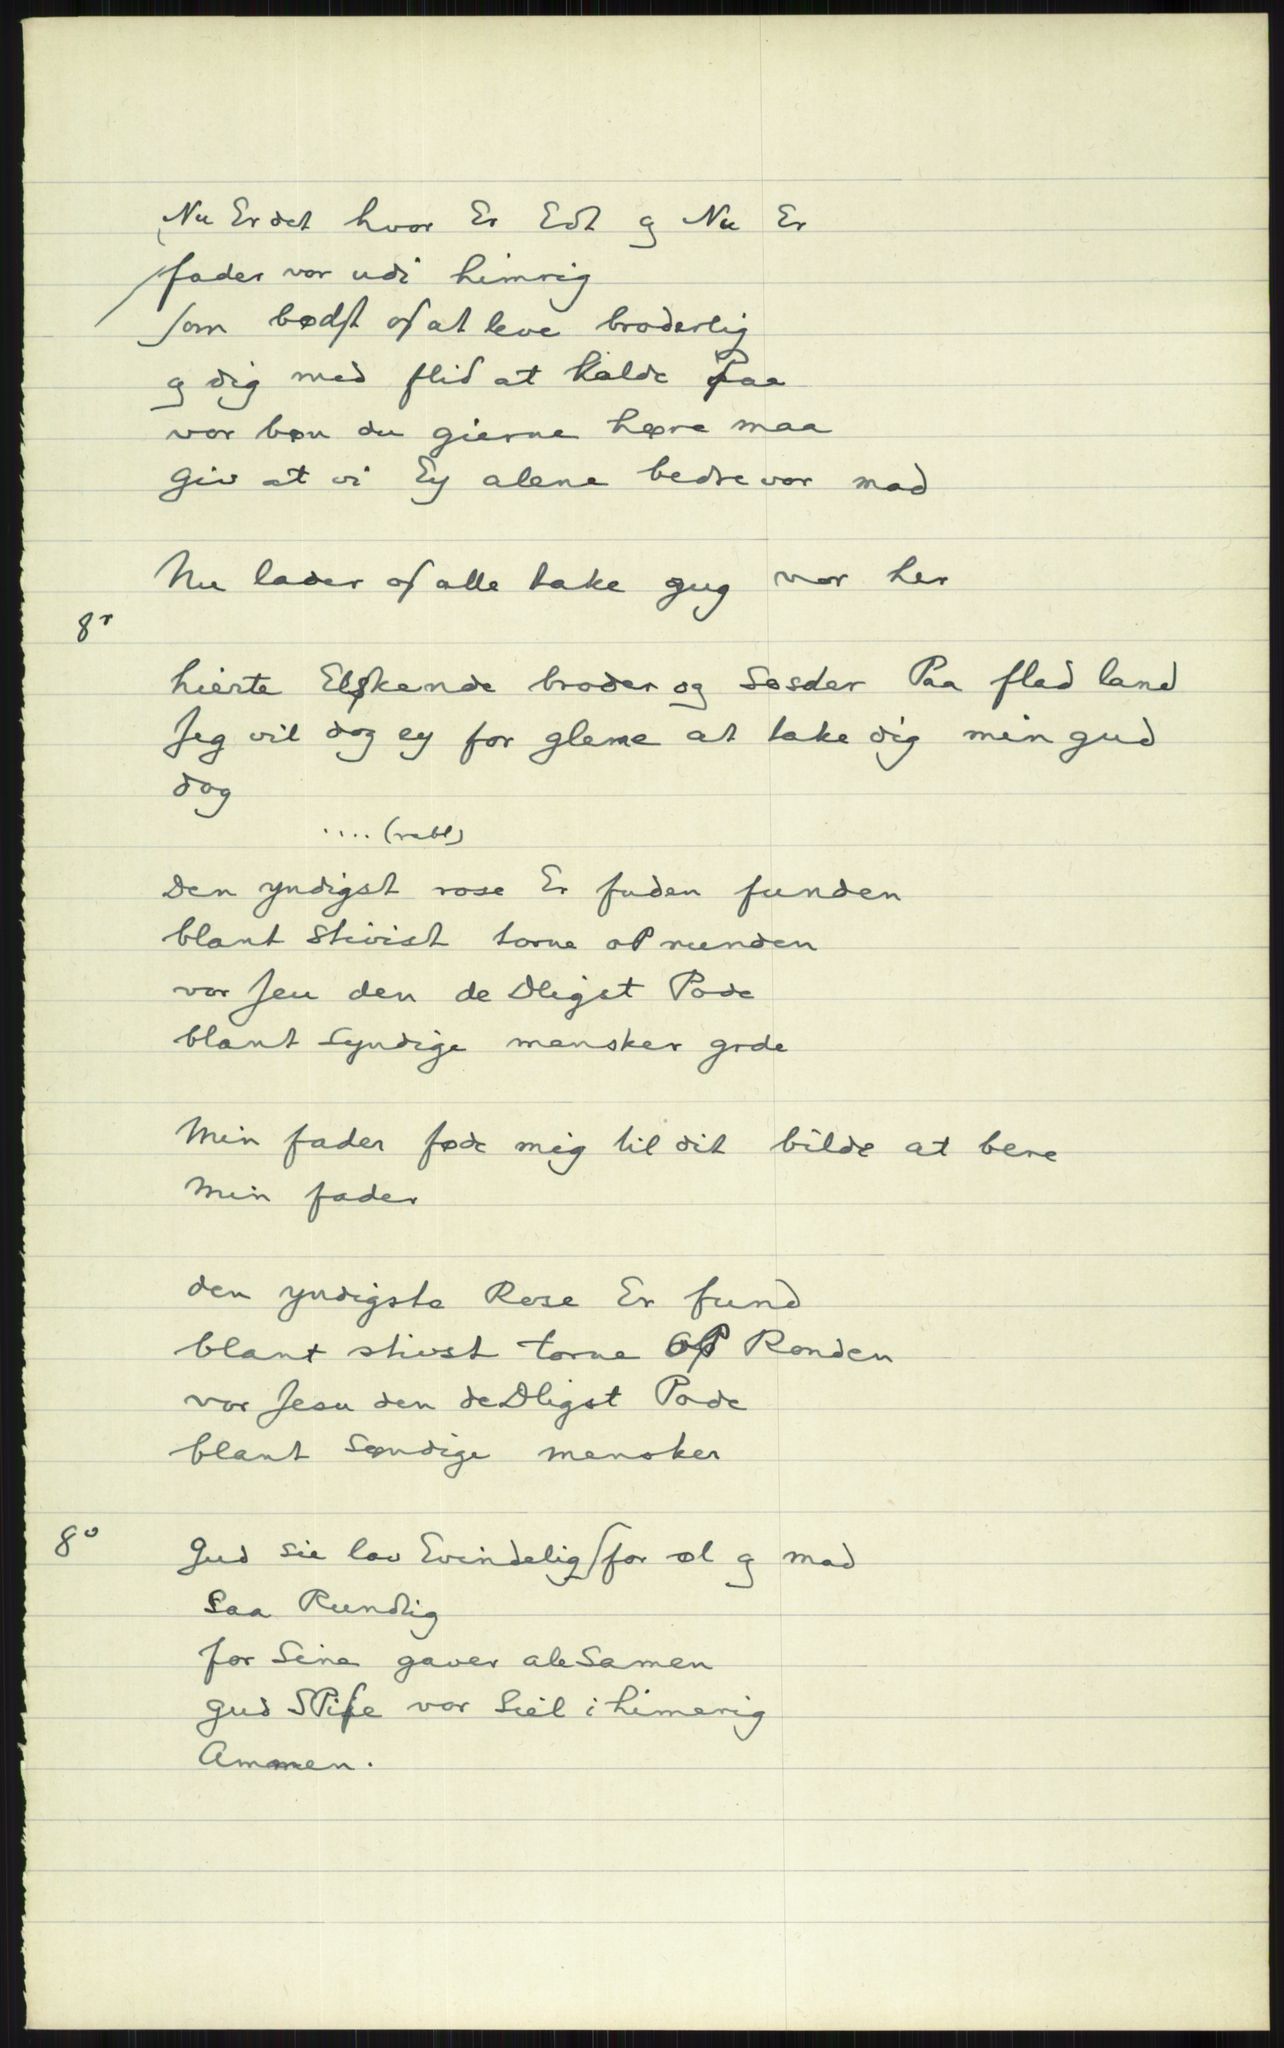 Nu Er det hvor Er Edt g Nu Er
fader vor udi himrig
som bødst os at leve broderlig
g dig med flid at kalde Paa
vor bøn du gierne høre maa
giv at vi Ey alene bedre vor mad
Nu lader os alle take gug vor her
8r
hierte Elskende broder og søsder Paa flad land
Jeg vil dog ey for gleme at take dig min gud
dog
.... (rabl)
Den yndigst rose Er fuden funden
blant stivist torne oP runden
vor Jeu den de Dligst Pode
blant Syndige mensker grde
Min fader føde mig til dit bilde at bere
Min fader
den yndigste Rose Er fund
blant stivst torne oP Ronden
vor Jesu den deDligst Pode
blant Søndige mensker
8v
Gud sie lov Evindelig/for øl g mad
Saa Rundlig
for Sine gaver aleSamen
gud SPise vor Siel i himerig
Ammen.